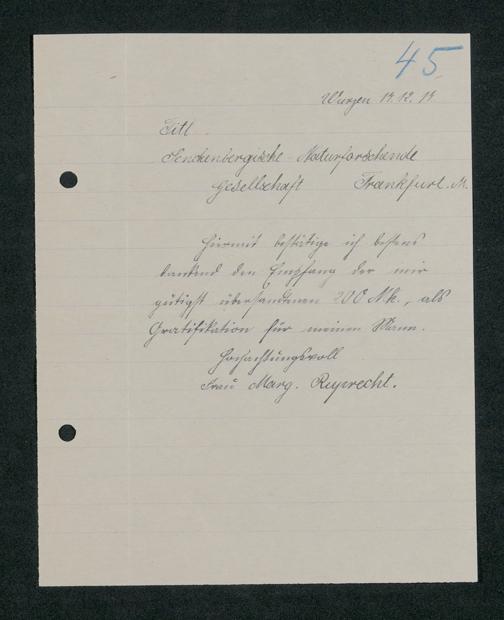 45
Wurzen 19.12.19.
Titl.
Senckenbergische Naturforschende
Gesellschaft Frankfurt. M.
Hiermit bestätige ich bestens
dankend den Empfang der mir
gütigst übersandtenen 200 Mk., als
Gratifikation für meinen Mann.
Hochachtungsvoll
Frau Marg. Ruprecht.